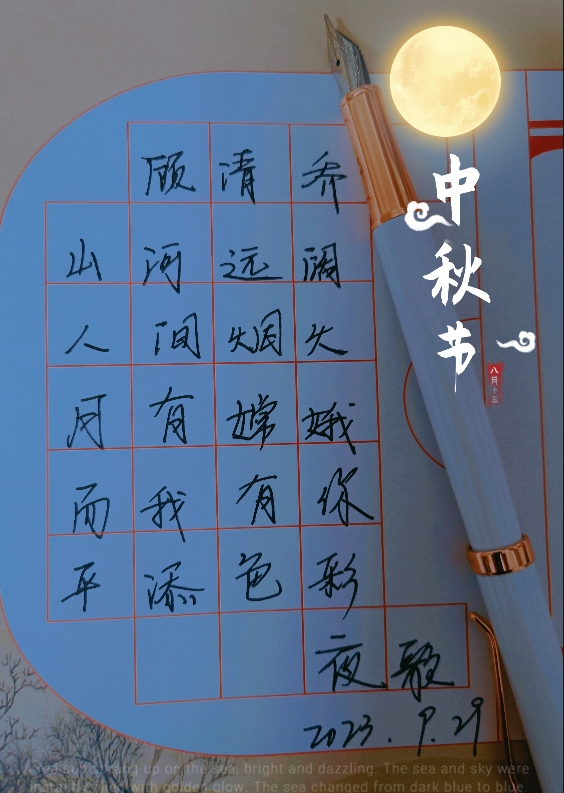 顾清乔
山河远阔
人间烟火
月有嫦娥
而我有你
平添色彩
夜歌
2023.9.29
中秋节
八月十五
sun sprang up on the sea, bright and dazzling. The sea and sky were
golden glow. The sea changed from dark blue to blue